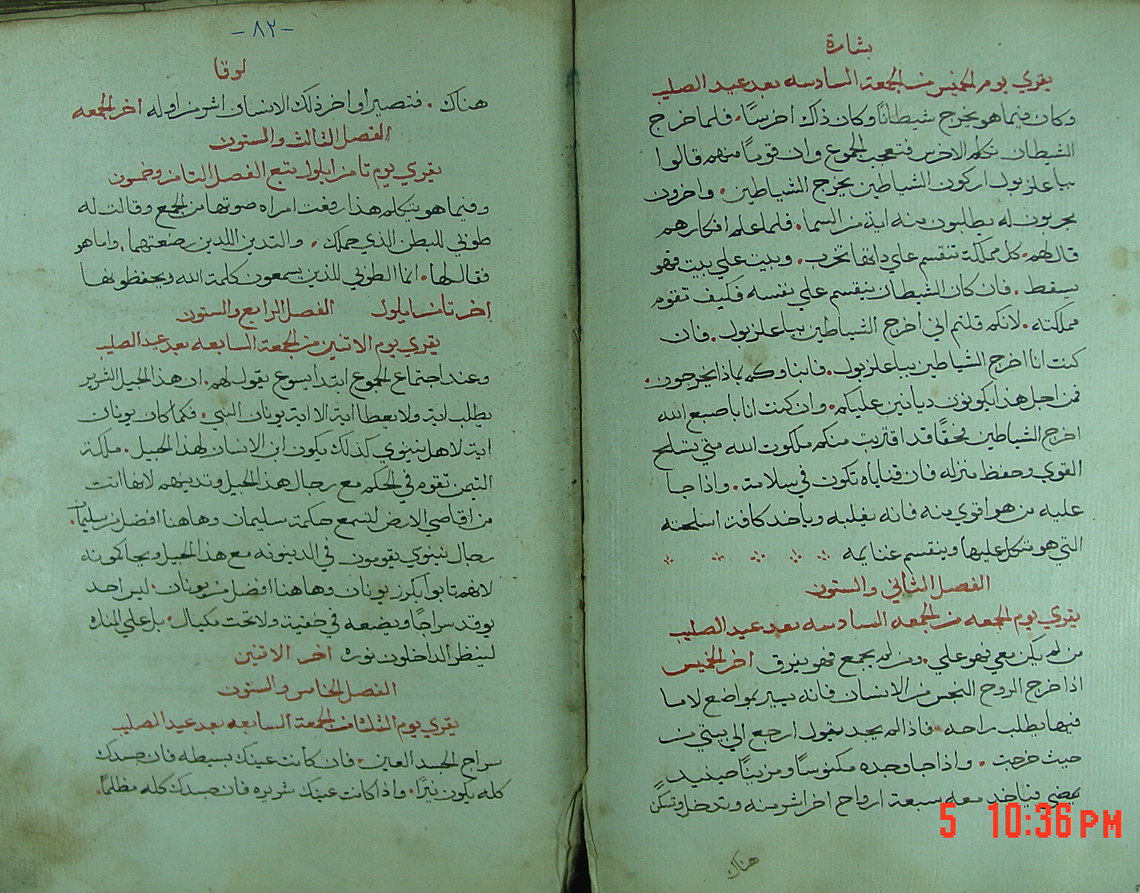 بشارة
يقري يوم الخميس من الجمعة السادسه بعد عيد الصليب
وكان فيما هو يخرج شيطانًا وكان ذاك اخرسًا. فلما خرج
الشيطان تكلم الاخرس فتعجب الجموع وان قومًا منهم قالوا
بباعلزبول اركون الشياطين يخرج الشياطين. واخرون
يجربون له يطلبون منه اية من السما. فلما علم افكارهم
قال لهم. كل مملكة تنقسم علي ذاتها تخرب. وبيت علي بيت فهو
يسقط. فان كان الشيطان ينقسم علي نفسه فكيف تقوم
مملكته. لانكم قلتم اني اخرج الشياطين بباعلزبول. فان
كنت انا اخرج الشياطين بباعلزبول. فابناوكم بماذا يخرجون.
فمن اجل هذا يكونون ديانين عليكم. وان كنت انا باصبع الله
اخرج الشياطين فحقًا قد اقتربت منكم ملكوت الله متي تسلح
القوي وحفظ منزله فان قناياه تكون في سلامة. واذا جا
عليه من هو اقوي منه فانه يغلبه وياخد كافة اسلحته
التي هو متكل عليها ويقسم غنايمه
الفصل الثاني والستون
يقري يوم الجمعه من الجمعه السادسه بعد عيد الصليب
من لم يكن معي فهو علي. ومن لم يجمع فهو يفرق اخر الخميس
اذا خرج الروح النجس من الانسان فانه يسير بمواضع لا ما
فيها يطلب راحه. فاذا لم يجد يقول ارجع الي بيتي من
حيث خرجت. واذا جا وجده مكنوسًا ومزينًا حينيدٍ
يمضي فياخد معه سبعة ارواح اخر اشر منه وتدخل وتسكن
هناك
-٨٢-
لوقا
هناك. فتصير اواخر ذلك الانسان اشر من اوله اخر الجمعه
الفصل الثالث والستون
يقري يوم ثامن ايلول يتبع الفصل الثامن وخمسون
وفيما هو يتكلم هذا رفعت امراه صوتها من الجمع وقالت له
طوبي للبطن الذي حملك. والتديين اللدين رضعتهما. واما هو
فقال لها. انما الطوبي للذين يسمعون كلمة الله ويحفظونها
اخر تامن ايلول الفصل الرابع والستون
يقري يوم الاتنين من الجمعة السابعه بعد عيد الصليب
وعند اجتماع الجموع ابتدا يسوع يقول لهم. ان هذا الجيل الشرير
يطلب اية ولا يعطا اية الا اية يونان النبي. فكما كان يونان
اية لاهل نينوي كذلك يكون ابن الانسان لهذا الجيل. ملكة
التيمن تقوم في الحكم مع رجال هذا الجيل وتدينهم لانها اتت
من اقاصي الارض لتسمع حكمة سليمان وهاهنا افضل من سليمان.
رجال نينوي يقومون في الدينونه مع هذا الجيل ويحاكمونه
لانهم تابوا بكرز يونان وهاهنا افضل من يونان. ليس احد
يوقد سراجًا ويضعه في خفية ولا تحت مكيال. بل علي المناره
لينظر الداخلون نوره اخر الاتنين
الفصل الخامس والستون
يقري يوم الثلث من الجمعة السابعه بعد عيد الصليب
سراج الجسد العين. فان كانت عينك بسيطه فان جسدك
كله يكون نيرًا. واذا كانت عينك شريره فان جسدك كله مظلمًا.
5 10:36 PM